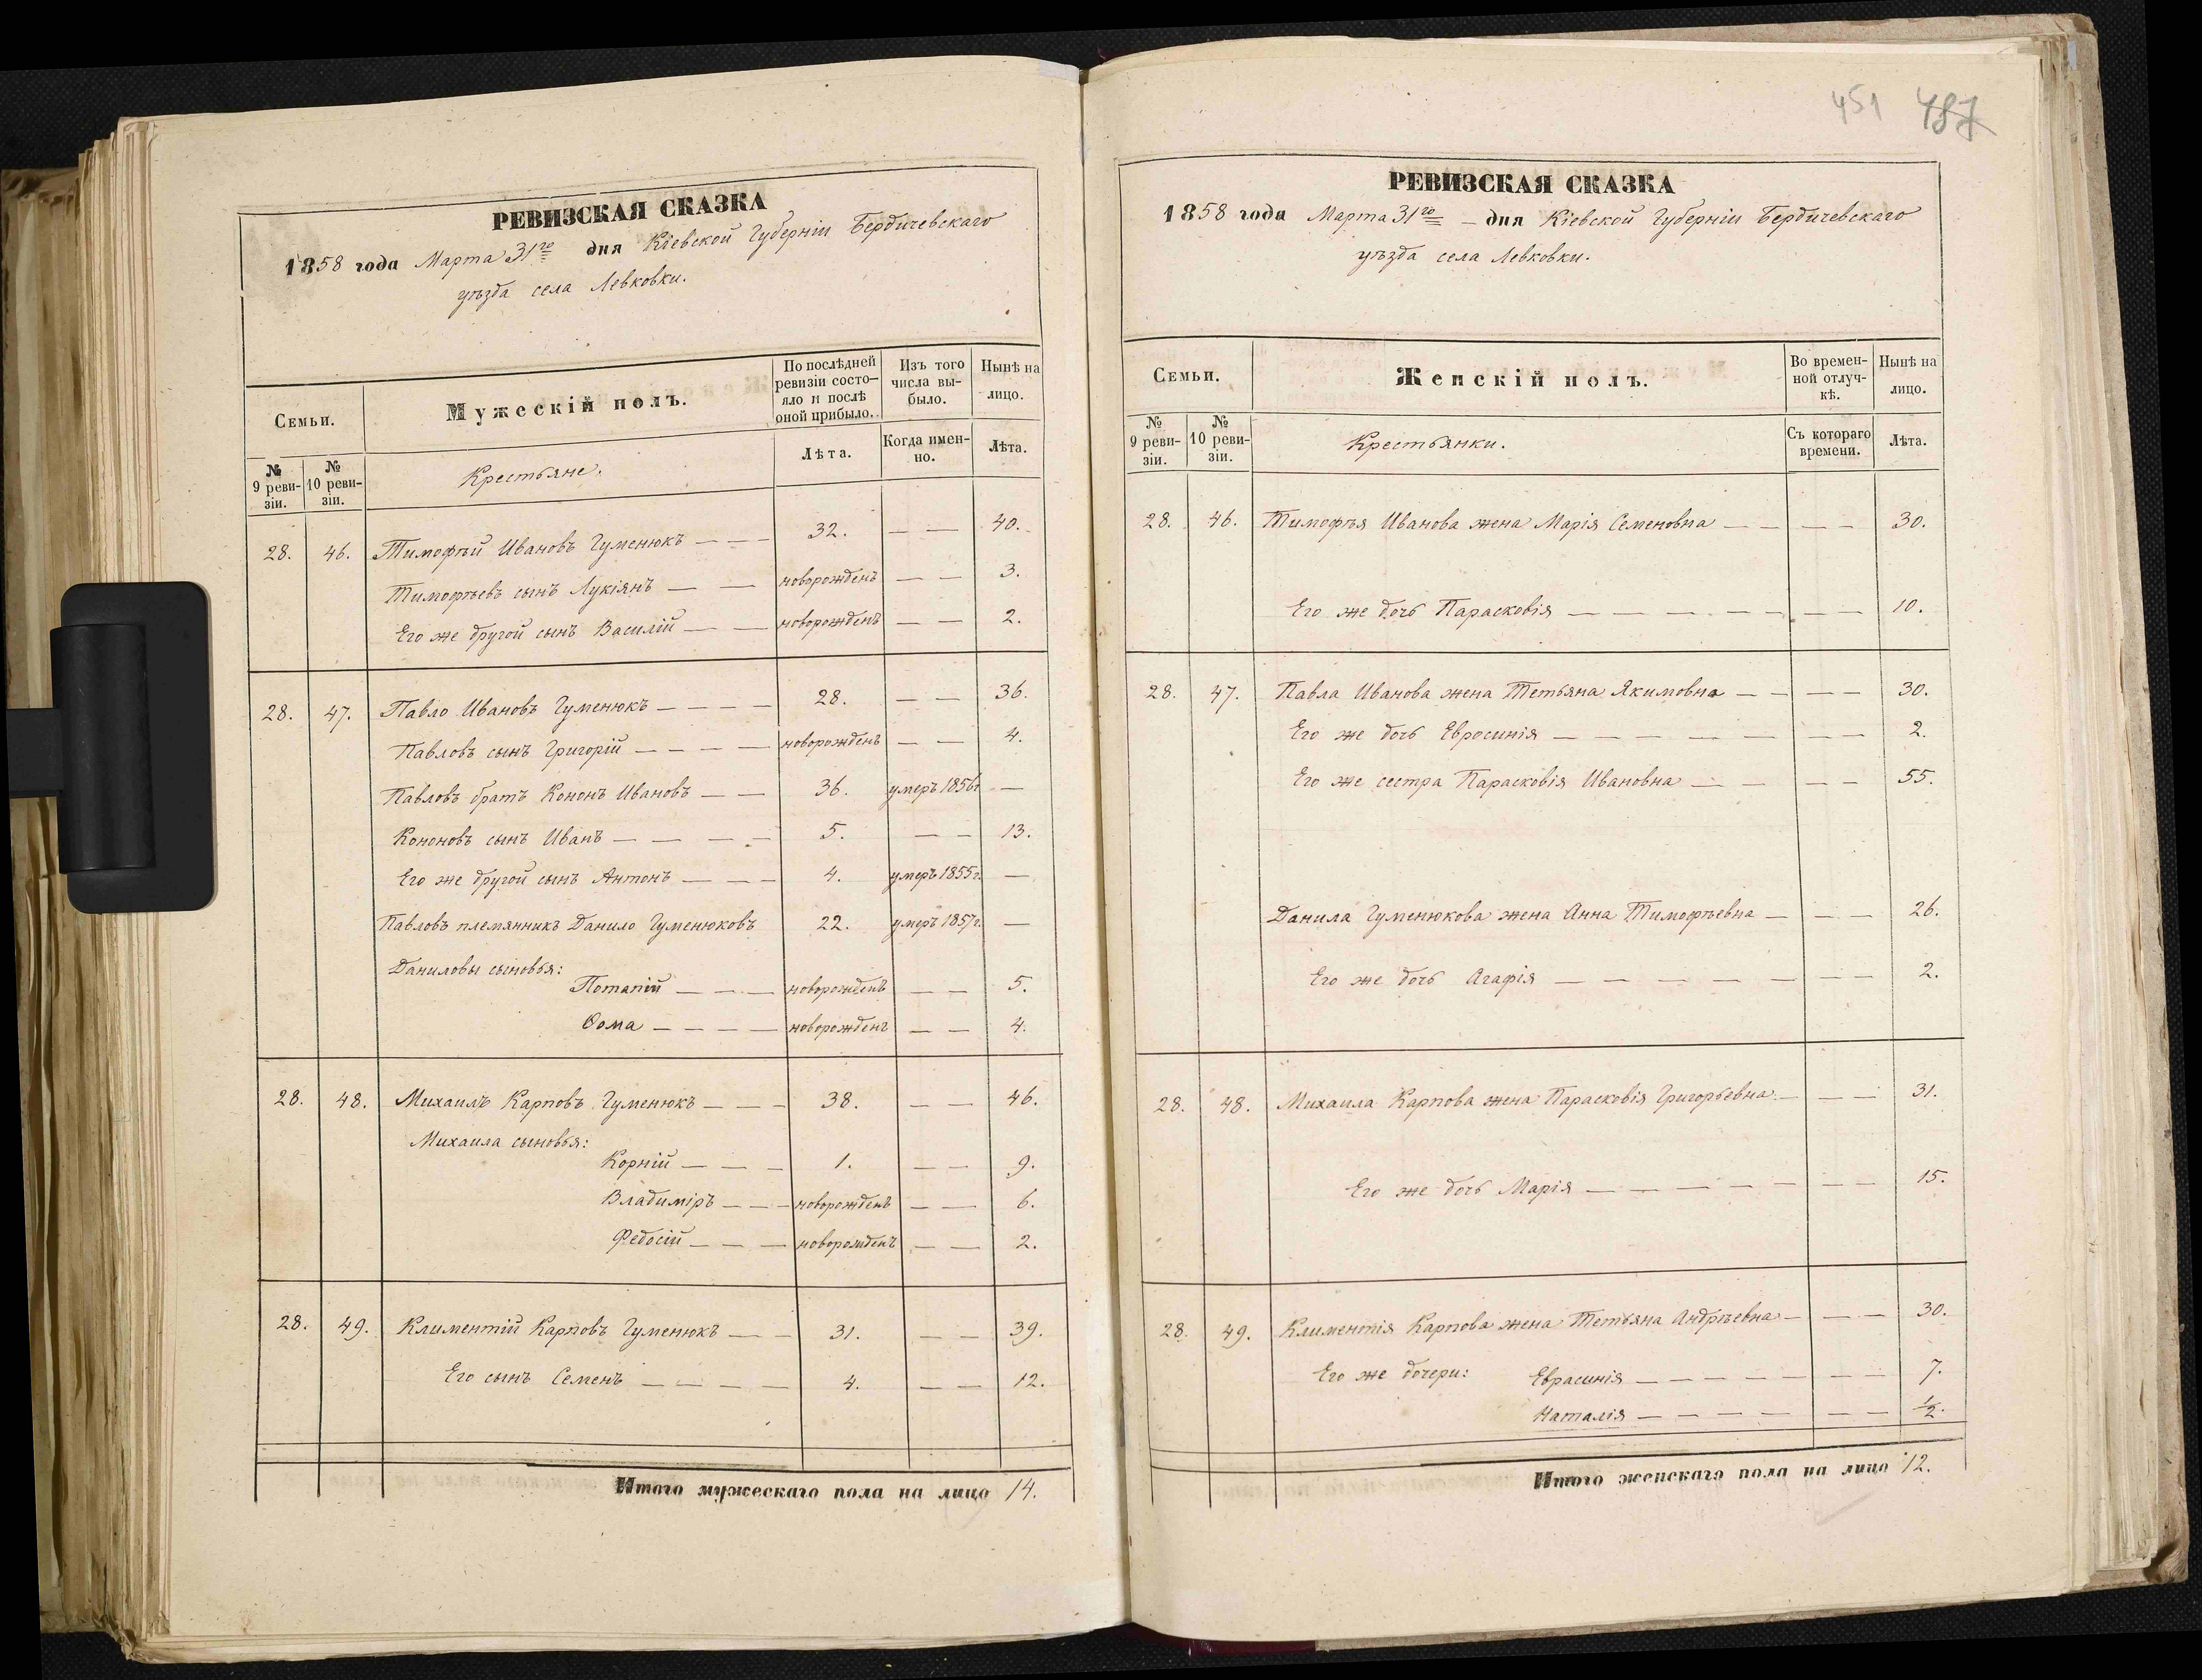 РЕВИЗСКАЯ СКАЗКА
1858 года Марта 31го дня Кіевской Губерніи Бердичевскаго
уѣзда села Левковки.
Семьи.
Мужескій полъ.
По послѣдней ревизіи состояло и послѣ оной прибыло.
Изъ того числа выбыло.
Нынѣ на лицо.
№ 9 ревизіи.
№ 10 ревизіи.
Крестьяне.
Лѣта.
Когда именно.
Лѣта.
28. 46. Тимофѣй Ивановъ Гуменюкъ — — — 32. — — 40.
Тимофѣевъ сынъ Лукіянъ — — новорожденъ — — 3.
Его же другой сынъ Василій — — новорожденъ — — 2.
28. 47. Павло Ивановъ Гуменюкъ — — — — 28. — — 36.
Павловъ сынъ Григорій — — — — новорожденъ — — 4.
Павловъ братъ Кононъ Ивановъ — — 36. умеръ 1856г. —
Кононовъ сынъ Иванъ — — — — 5. — — 13.
Его же другой сынъ Антонъ — — — 4. умеръ 1855г. —
Павловъ племянникъ Данило Гуменюковъ 22. умеръ 1857г. —
Даниловы сыновья:
Потапій — — — новорожденъ — — 5.
Ѳома — — — — новорожденъ — — 4.
28. 48. Михаилъ Карповъ Гуменюкъ — — — 38. — — 46.
Михаила сыновья:
Корній — — — 1. — — 9.
Владиміръ — — — новорожденъ — — 6.
Федосій — — — новорожденъ — — 2.
28. 49. Климентій Карповъ Гуменюкъ — — 31. — — 39.
Его сынъ Семенъ — — — — 4. — — 12.
Итого мужескаго пола на лицо 14.
451 487
РЕВИЗСКАЯ СКАЗКА
1858 года Марта 31го — дня Кіевской Губерніи Бердичевскаго
уѣзда села Левковки.
Семьи.
Женскій полъ.
Во временной отлучкѣ.
Нынѣ на лицо.
№ 9 ревизіи.
№ 10 ревизіи.
Крестьянки.
Съ котораго времени.
Лѣта.
28. 46. Тимофѣя Иванова жена Марія Семеновна — — — — 30.
Его же дочь Парасковія — — — — — — — 10.
28. 47. Павла Иванова жена Тетьяна Якимовна — — — — 30.
Его же дочь Евросинія — — — — — — — 2.
Его же сестра Парасковія Ивановна — — — — 55.
Данила Гуменюкова жена Анна Тимофѣевна — — — 26.
Его же дочь Агафія — — — — — — — 2.
28. 48. Михаила Карпова жена Парасковія Григорьевна — — — 31.
Его же дочь Марія — — — — — — — 15.
28. 49. Климентія Карпова жена Тетьяна Андрѣевна — — — 30.
Его же дочери: Еврасинія — — — — — — — 7.
Наталія — — — — — — ½.
Итого женскаго пола на лицо 12.